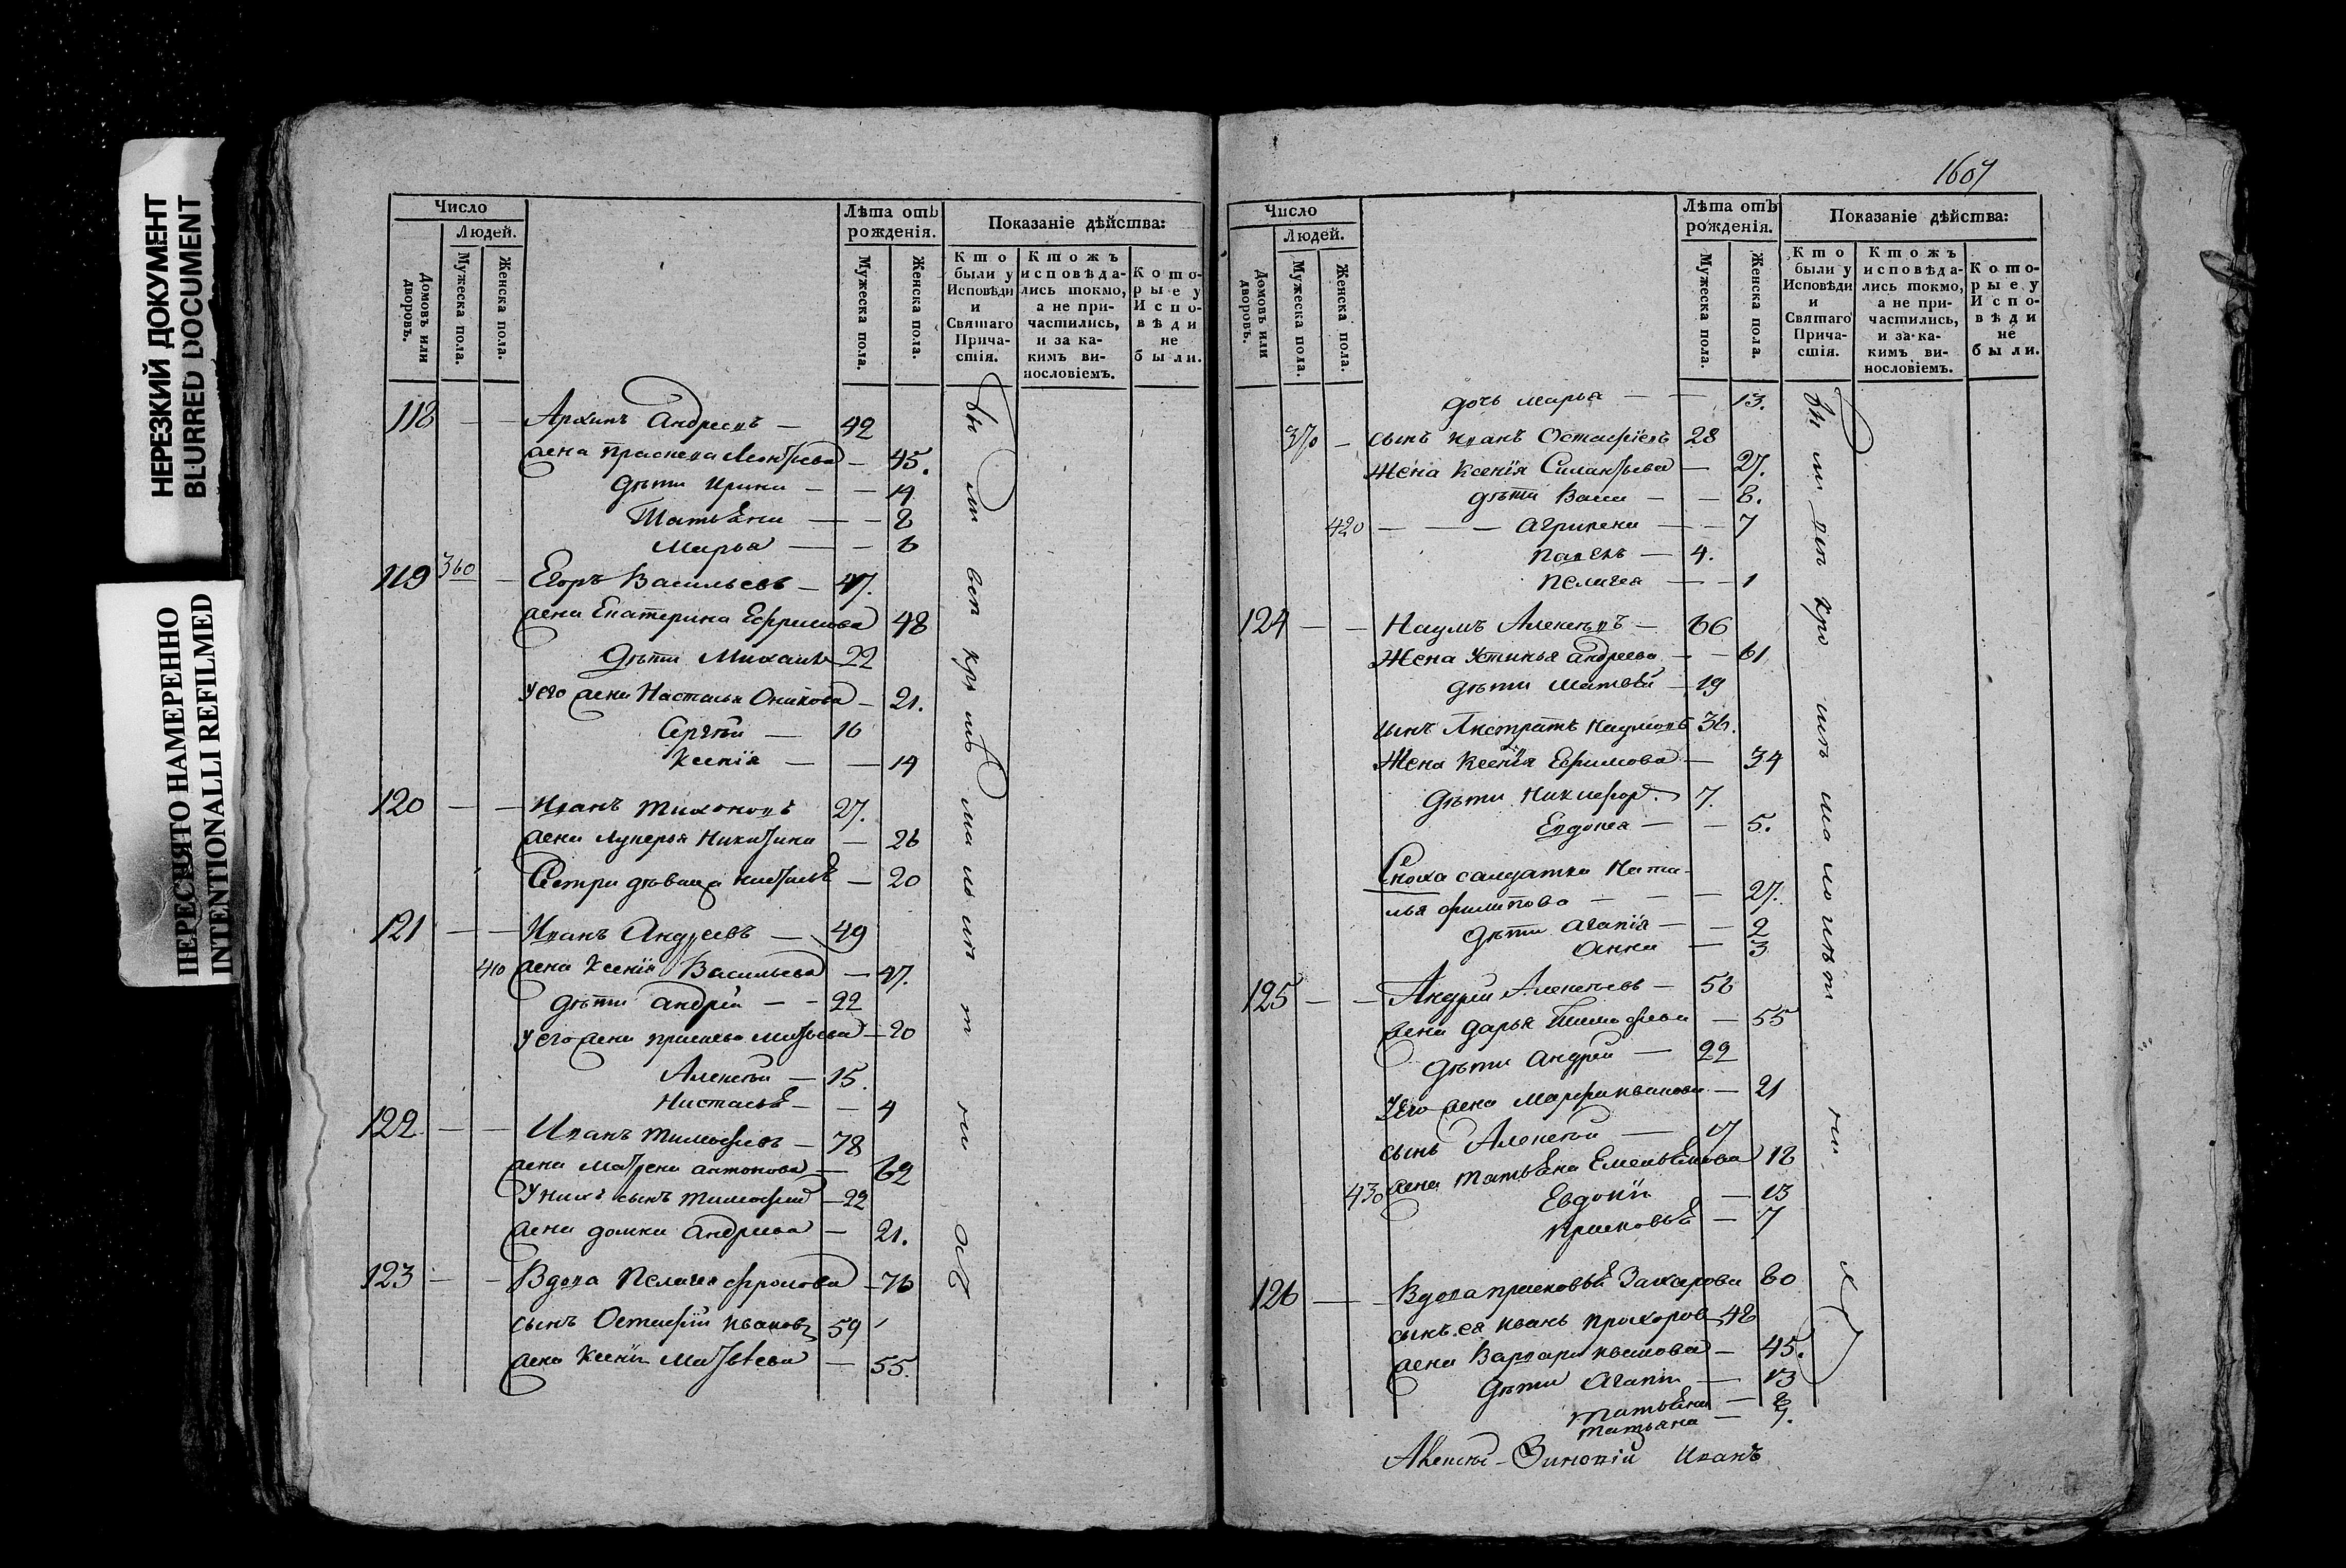 НЕРЕЗКИЙ ДОКУМЕНТ
BLURRED DOCUMENT
ПЕРЕСНЯТО НАМЕРЕННО
INTENTIONALLI REFILMED
Число
Людей.
Домовъ или дворовъ.
Мужеска пола.
Женска пола.
Лѣта отъ рожденія.
Мужеска пола.
Женска пола.
Показаніе дѣйства:
Кто были у Исповѣди и Святаго Причастія.
Ктожъ исповѣдались токмо, а не причастились, и за какимъ винословіемъ.
Которые у Исповѣди не были.
118 — — Архипъ Андреевъ — 42
жена Праскева Леонтьева — 45.
дѣти Ирина — — 14
Татьяна — — 8
Марья — — 6
119 360 — Егоръ Васильевъ — 47.
жена Екатерина Ефримова 48
дѣти Михаилъ 22
у его жена Насталья Оникова — 21.
Сергѣй — 16
Ксенія — — 14
120 — — Иванъ Тихоновъ 27.
жена Лукерья Никитина — 26
Сестра дѣвица — 20
121 — — Иванъ Андреевъ — 49
410 жена Ксенія Васильева — 47.
дѣти Андрей — — 22
у его жена Матвѣева — 20
Алексѣй — 15.
Насталья — — 4
122 — — Иванъ Тимофѣевъ — 78
жена Матрена Антонова — 62
У нихъ сынъ Тимофей — 22
жена Домна Андреева — 21.
123 — — Вдова Пелагея Фролова — 76
сынъ Остафій Ивановъ 59
жена Ксенія Матвѣева — 55.
1607
Число
Людей.
Домовъ или дворовъ.
Мужеска пола.
Женска пола.
Лѣта отъ рожденія.
Мужеска пола.
Женска пола.
Показаніе дѣйства:
Кто были у Исповѣди и Святаго Причастія.
Ктожъ исповѣдались токмо, а не причастились, и за какимъ винословіемъ.
Которые у Исповѣди не были.
дочь Марья — — 13.
370 — сынъ Иванъ Остафіевъ 28
Жена Ксенія Силантьева — 27.
дѣти — — 8.
420 — — — Агрипена — — 7
Павелъ — 4.
Пелагея — — 1
124 — — Наумъ Алексѣевъ — 66
Жена Устинья Андреева — — 61
дѣти Матвѣй — 19
сынъ Наумовъ 36.
Жена Ксенія Ефимова — 34
дѣти Никифоръ 7.
Евдокея — — 5.
Сноха салдатка Ната-
лья Филипова — — — 27.
дѣти Агапія — — 2
Анна — 3
125 — — Андрей Алексѣевъ — 56
жена Дарья Тимофѣева — 55
дѣти Андрей — 22
У его жена Марфа Иванова — 21
сынъ Алексѣй — 17
жена Татьяна Емельянова 18
430 Евдокія — 13
Прасковья — 7
126 — — Вдова Прасковья Захарова 80
сынъ ея Иванъ Прохоровъ 48
жена Варвара — 45.
дѣти Агапія — 13
Татьяна — 8
Татьяна — 7.
Зиновій Иванъ